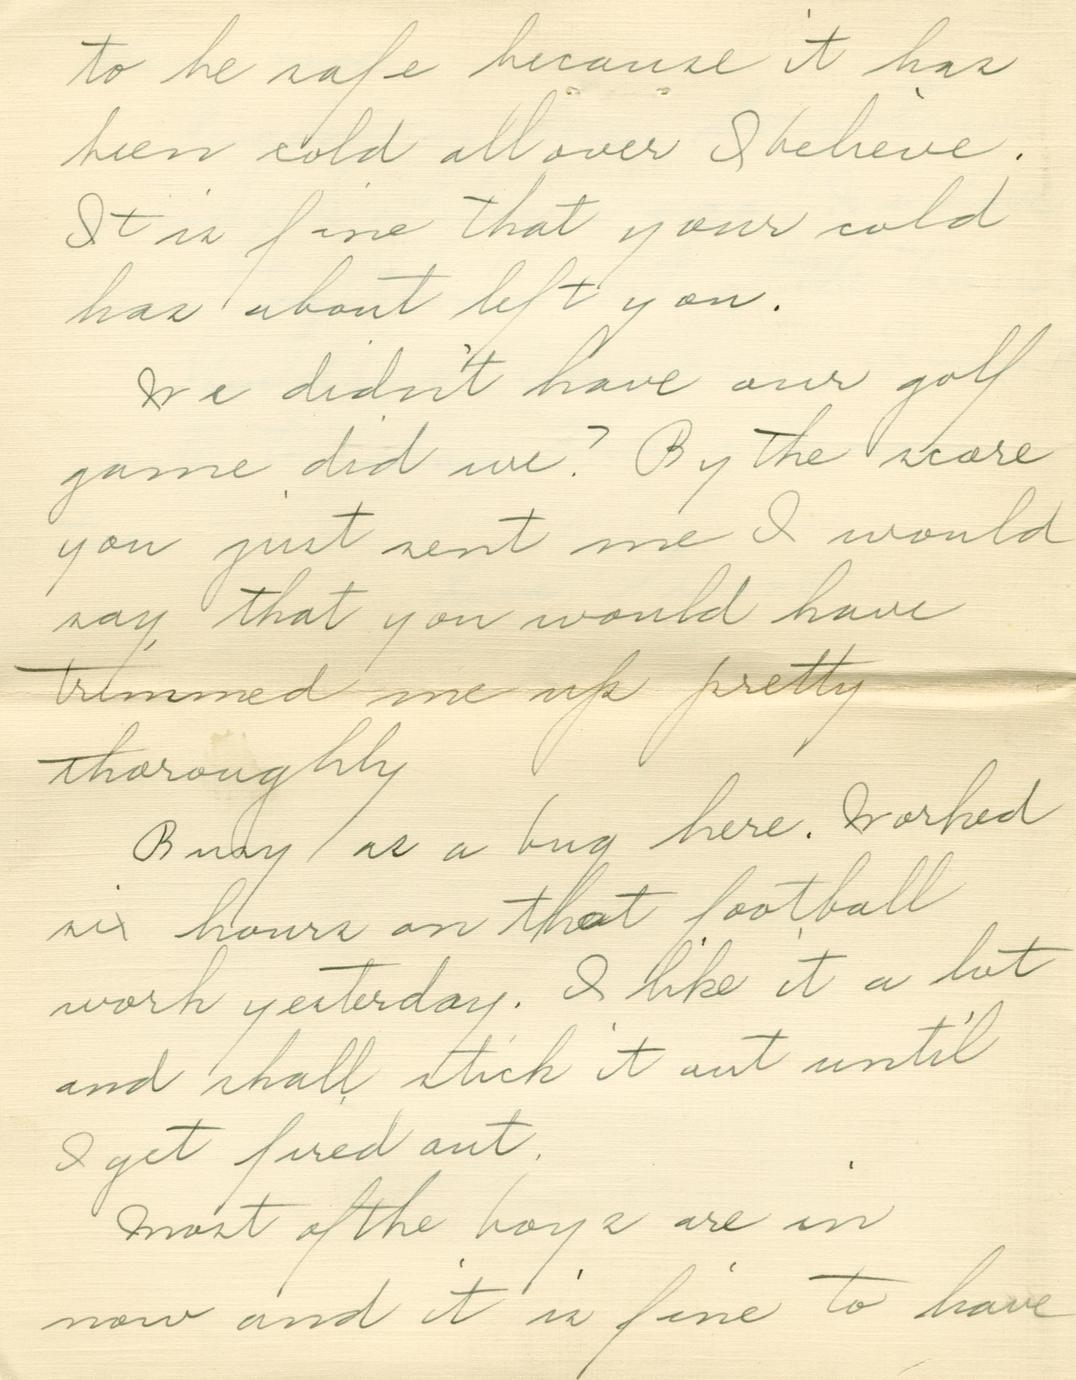 to be safe because it has
been cold all over I believe.
It is fine that your cold
has about left you.
We didn't have our golf
game did we? By the score
you just sent me I would
say, that you would have
trimmed me up pretty
thoroughly
Busy as a bug here. Worked
six hours on that football
work yesterday. I like it a lot
and shall stick it out until
I get fired out.
Most of the boys are in
now and it is fine to have